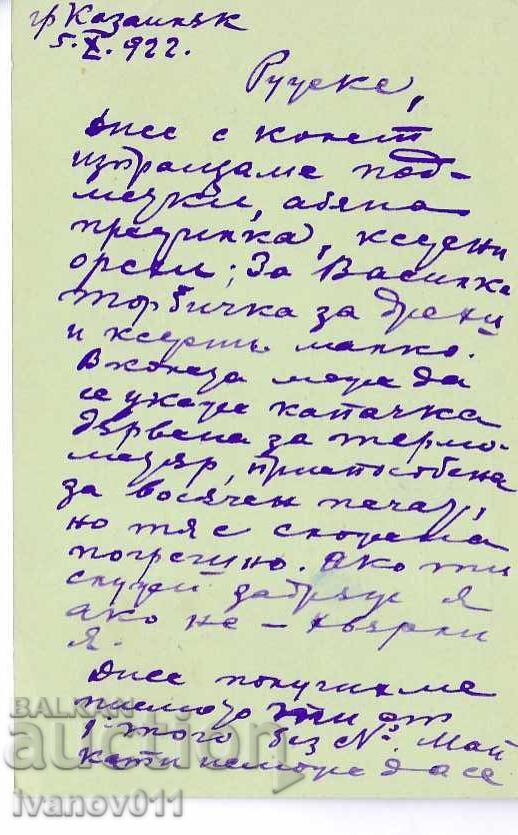 гр Казанлѫк
5.X.922.
Русске,
Днес с колет
изпращаме под-
метки, абяна
предпика, ксерни
орехи; За Василка
торбичка за дрехи
и ксерти малко.
В колеза може да
се укаже капачка
дървена за термо-
метър, приспособена
за восъчен печат,
но тя е сложена
погрешно. Ако ти
служи задръж я
ако не – хвърли
я.
Днес получихме
писмото ти от
1 того без №. Май
кати неможе да се
BALKAN
auction
ivanov011